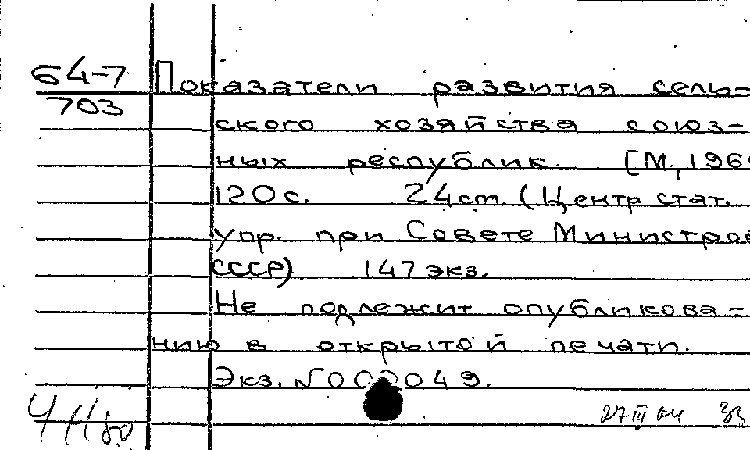 64-7
703
Показатели развития сель-
ского хозяйства союз-
ных республик. [М., 196
120 с. 24 см. (Центр. стат.
упр. при Совете Министров
СССР) 147 экз.
Не подлежит опубликова-
нию в открытой печати.
Экз. № 000049.
27 III 64